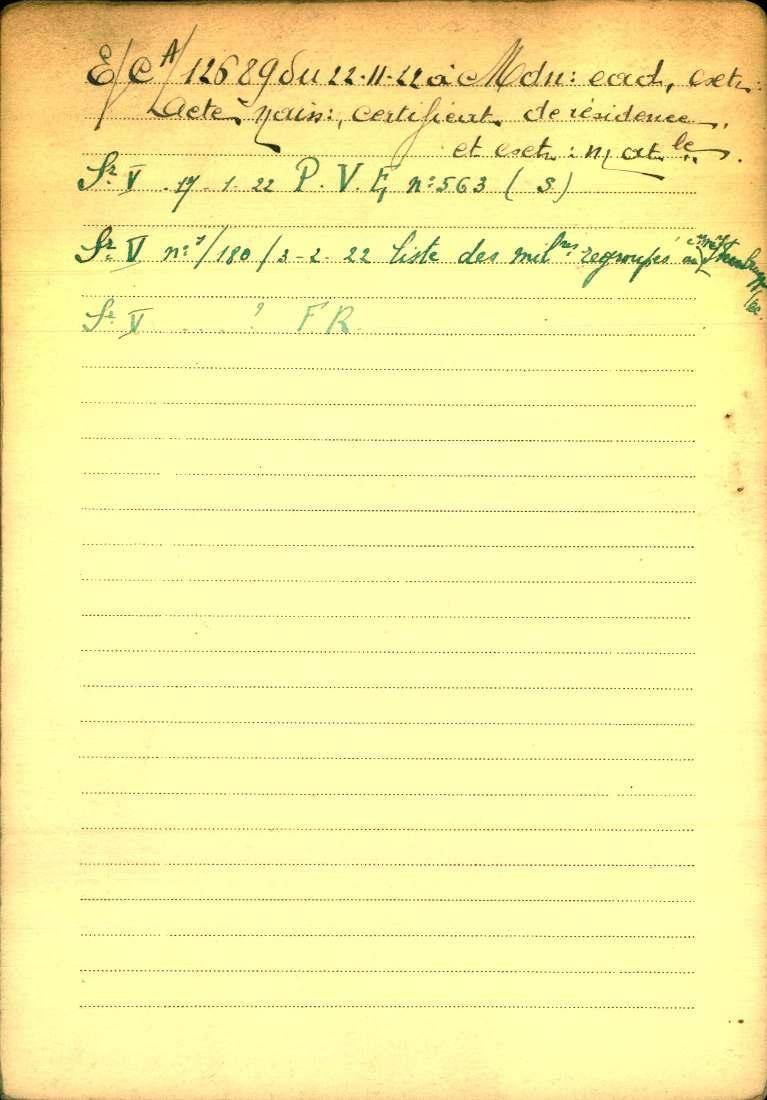 E/C A/ 12689 du 22-11-22 à Mdn: cad, extr:
acte nais:, certificat de résidence
et extr: mat le.
Sr. V 17-1-22 P.V.E, n°563 (S)
Sr. V n° 7/180/3-2-22 liste des mil res regroupés au
Sr V ? F R